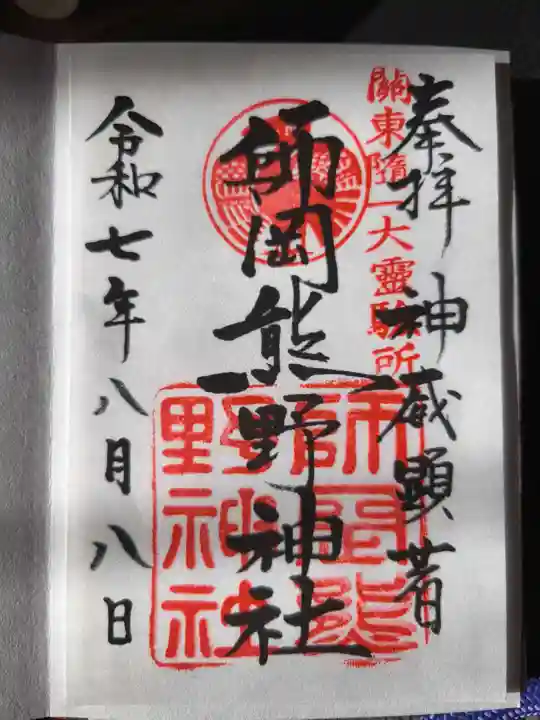 奉拝 神威顕著
關東随一大靈驗所
師岡熊野神社
師岡熊
野神社
令和七年八月八日